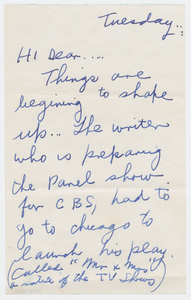 Tuesday..
Hi Dear....
Things are
begining to shape
up.. The writer
who is preparing
the Panel show
for CBS, had to
go to chicago to
launch his play.
(Called "Mr & Mrs"
a satire of the TV Shows)